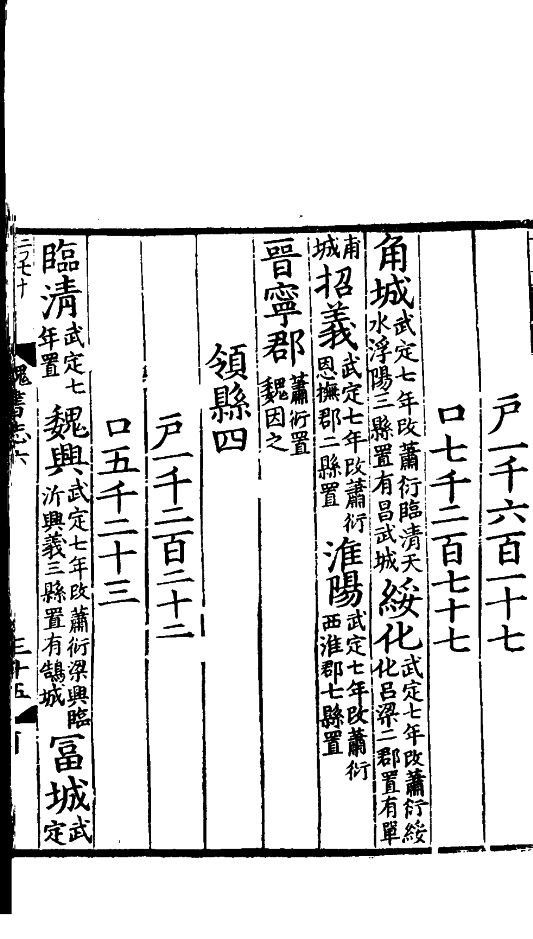 戶一千六百一十七
口七千二百七十七
角城武定七年改蕭衍臨清天水浮陽三縣置有昌武城綏化武定七年改蕭衍綏化呂梁二郡置有單
甫城招義武定七年改蕭衍恩撫郡二縣置淮陽武定七年改蕭衍西淮郡七縣置
晉寧郡蕭衍置魏因之
領縣四
戶一千二百二十二
口五千二十三
臨清武定七年置魏興武定七年改蕭衍梁興臨沂興義三縣置有鵠城冨城武定
魏書志六
三十五